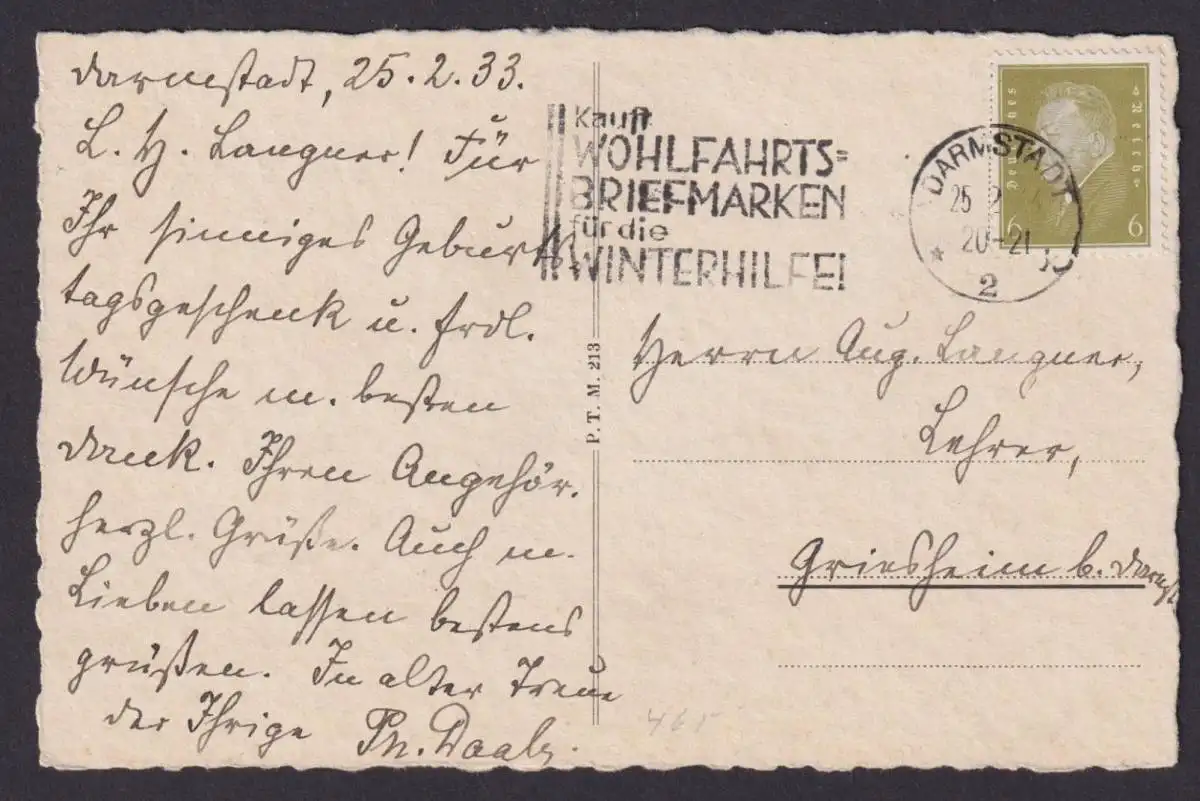 Darmstadt, 25.2.33.
L. H. Langner! Für
Ihr sinniges Geburts
tagsgeschenk u. frdl.
Wünsche m. besten
Dank. Ihren Angehör.
herzl. Grüße. Auch m.
Lieben lassen bestens
grüßen. In alter Treue
der Ihrige Ph.
P. T. M. 213
Kauft
WOHLFAHRTS=
BRIEFMARKEN
für die
WINTERHILFE!
DARMSTADT
25 2
20-21
2
Deutsches Reich
6 6
Herrn Aug. Langner,
Lehrer,
Griesheim b. Darmst
465